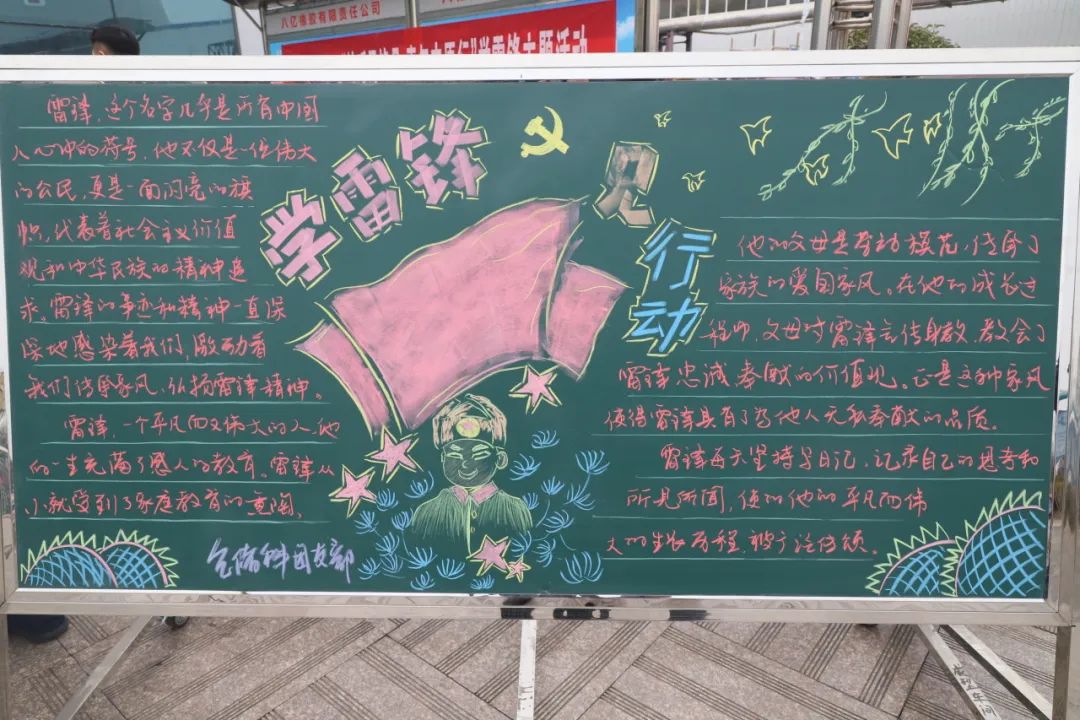 八亿橡胶有限责任公司
学雷锋主题活动
学雷锋
见
行动
雷锋,这个名字几乎是所有中国
人心中的符号,他不仅是一位伟大
的公民,更是一面闪亮的旗
帜,代表着社会主义价值
观和中华民族的精神追
求。雷锋的事迹和精神一直深
深地感染着我们,激励着
我们传承家风,弘扬雷锋精神。
雷锋,一个平凡而又伟大的人,他
的一生充满了感人的教育。雷锋从
小就受到了家庭教育的熏陶,
仓储科团支部
他的父母是劳动模范,传承了
家族的爱国家风。在他的成长过
程中,父母对雷锋言传身教,教会了
雷锋忠诚、奉献的价值观。正是这种家风
使得雷锋具有了为他人无私奉献的品质。
雷锋每天坚持写日记,记录自己的思考和
所见所闻,使的他的平凡而伟
大的生长历程,被广泛传颂。
成型车间